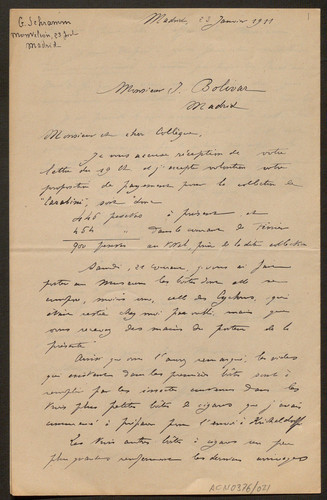 G. Schramm
Madrid
Madrid, 23 Janvier 1911
Monsieur I. Bolivar
Madrid
Monsieur et cher Collègue,
Je vous accuse réception de votre
lettre du 19 ct et j'accepte volontiers votre
proposition de payement pour la collection de
"Carabini", soit donc
446 pesetas à présent et
454 " dans le courant de Février
900 pesetas au total, prix de la dite collection
Samedi, 21 courant, j'avais fait
porter au Museum les boîtes dont elle se
compose, moins une, celle des Cychrus, qui
était restée chez moi par oubli, mais que
vous recevez des mains du porteur de la
présente
Ainsi que vous l'aurez remarqué, les vides
qui existaient dans les premières boîtes sont à
remplir par les insectes contenus dans les
trois plus petites boîtes à cigares que j'avais
commencé à préparer pour l'envoi à
Les trois autres boîtes à cigares un peu
plus grandes renferment les derniers arrivages
ACN0376/021